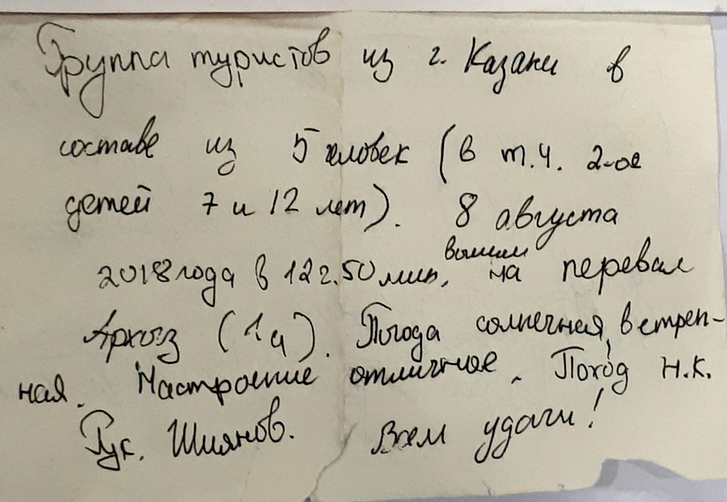 Группа туристов из г. Казани в
составе из 5 человек (в т.ч. 2-ое
детей 7 и 12 лет). 8 августа
2018 года в 12 г. 50 мин. вышли на перевал
Архыз (1а). Погода солнечная, ветрен-
ная. Настроение отличное. Поход н.к.
Рук. Шиянов. Всем удачи!